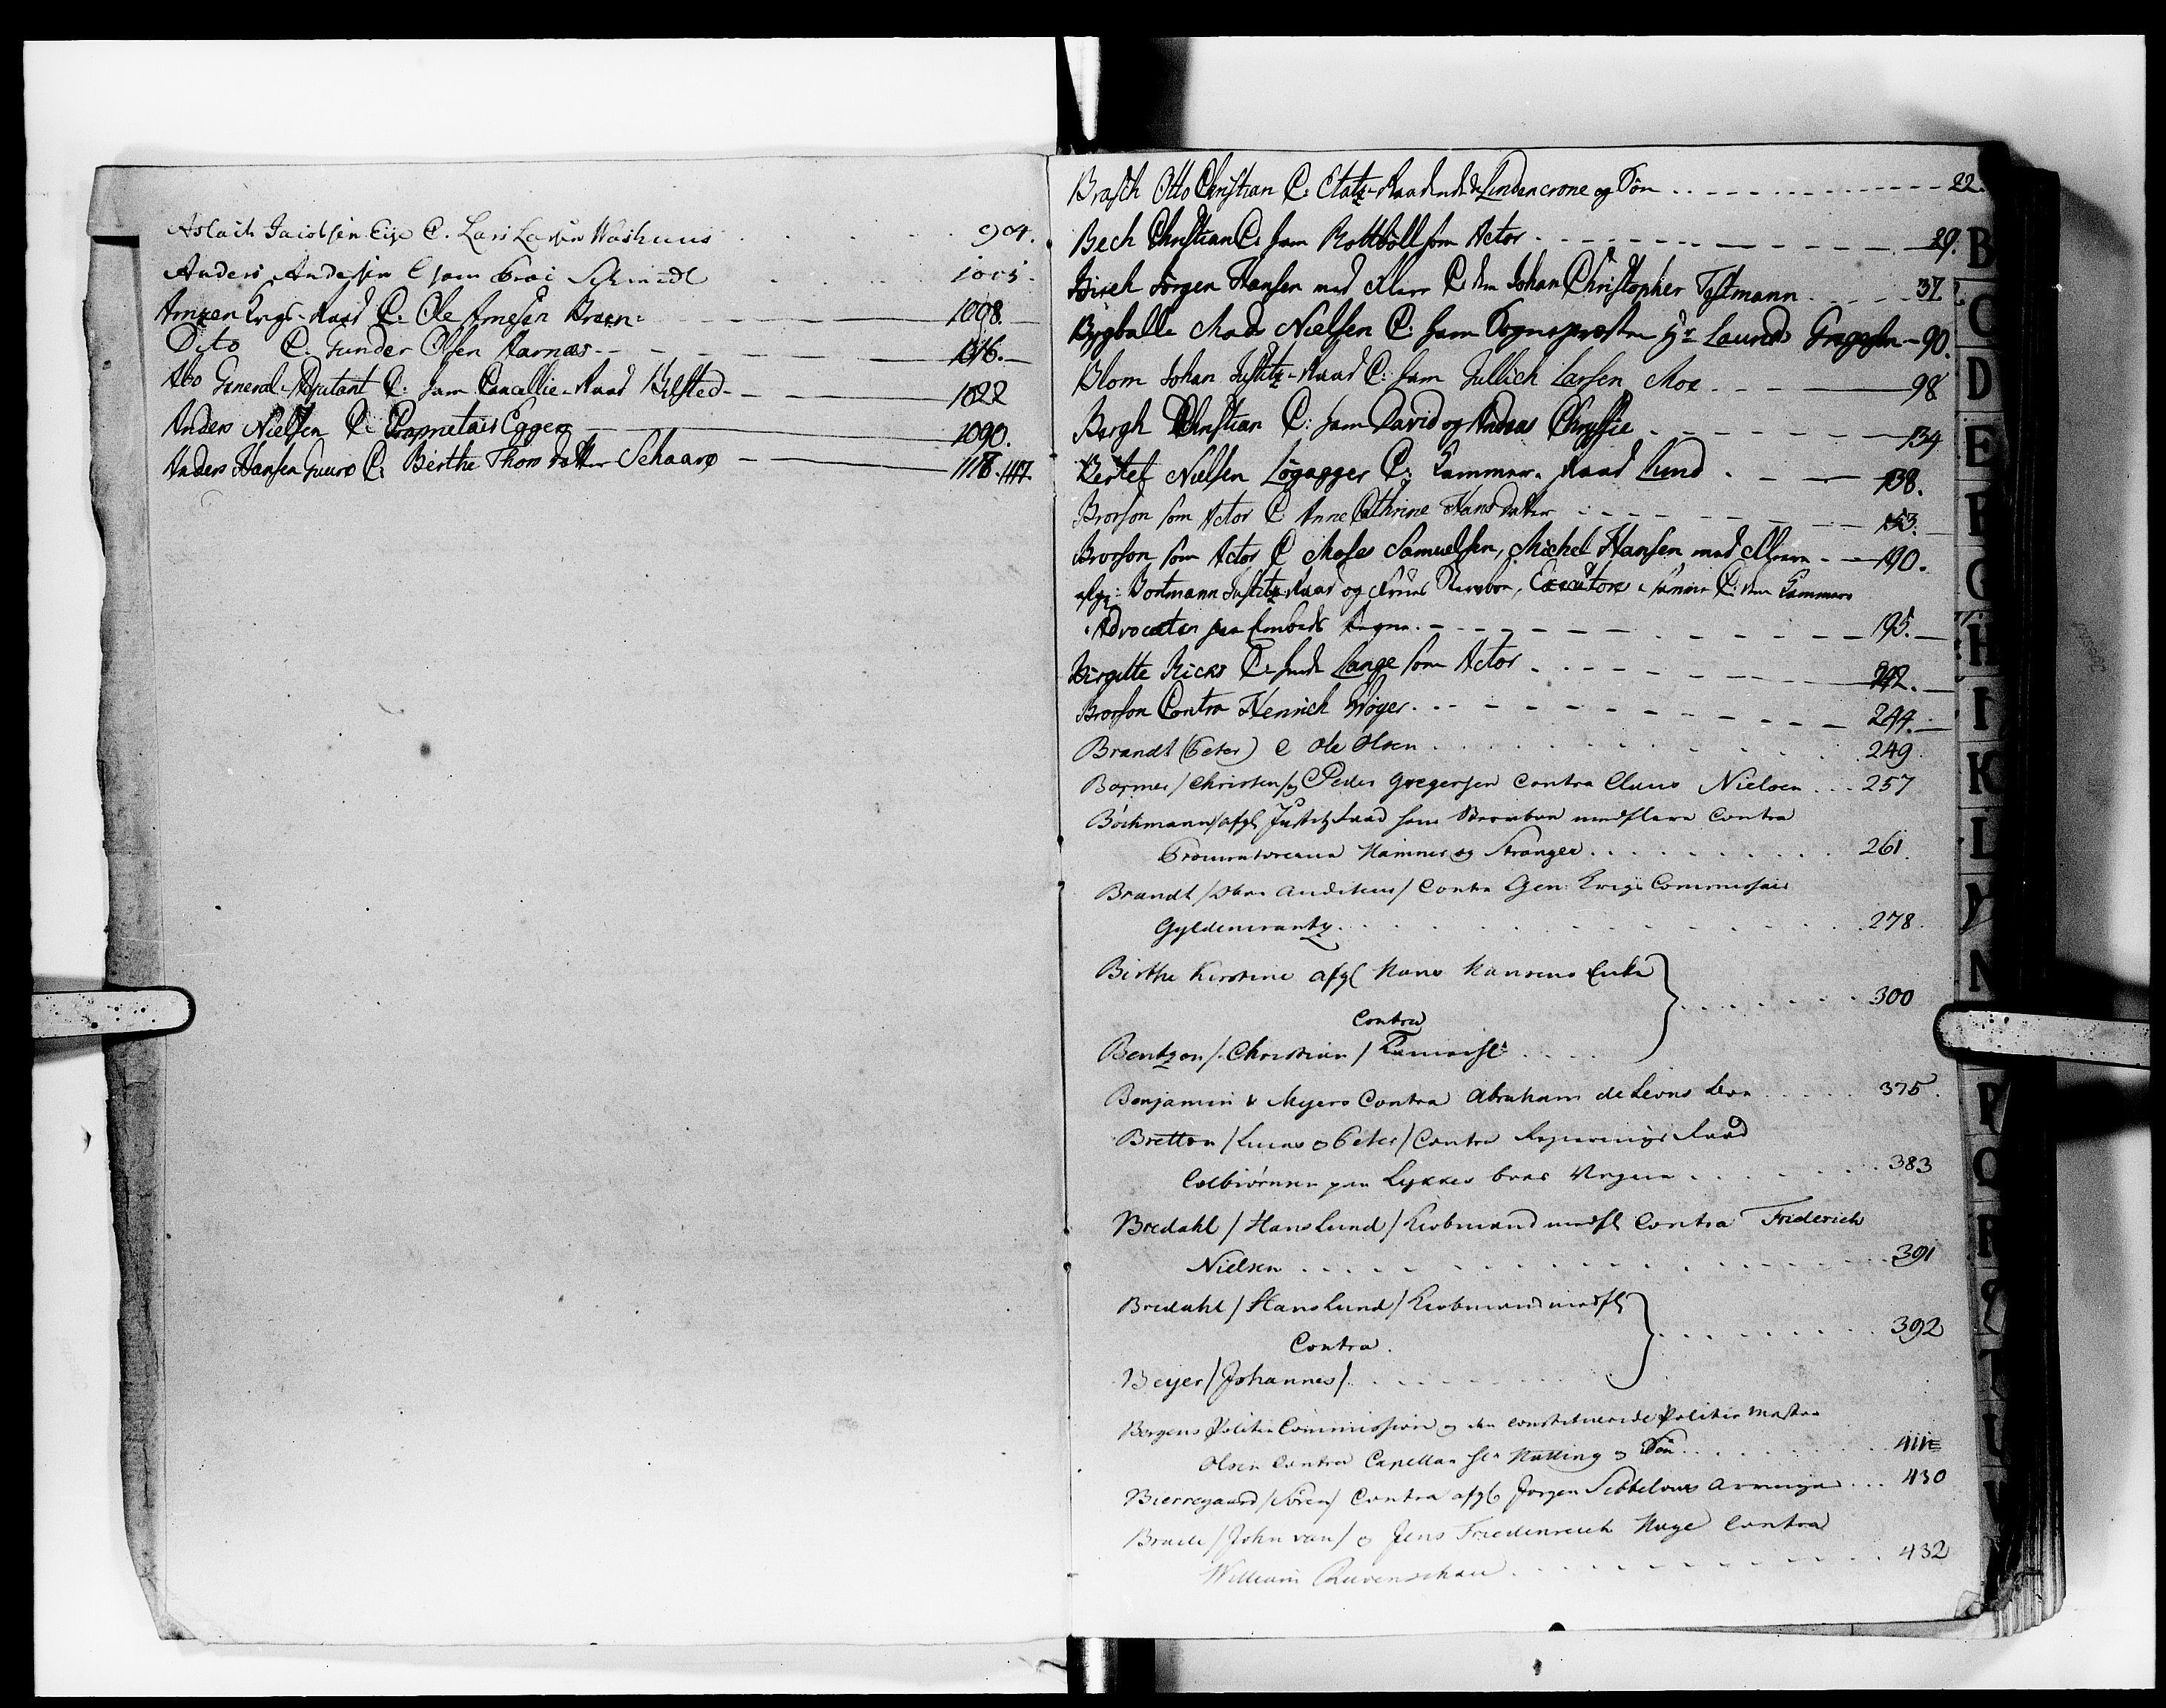 Aslach Jacobsen Eije C. Lars Larsen Washuus . . . 904.
Anders Andersen C Schmidt . . . 1005.
Arnzen Krigs-Raad C. Ole Arnesen Breen 1008.
Dito C. Gunder Olsen Aarnæs 1016.
Abo General-Adjutant C. Cancellie-Raad Kilsted 1022
Anders Nielsen C. Proprietair Egger 1090.
Anders Hansen Guurø C. Birthe Thomsdatter Schaarø 1116. 1117.
Brasch Otto Christian C. Etatz-Raadinde Lindencrone og Søn 22.
Bech Christian C. Rottbøll som Actor 29.
Birch Jørgen Hansen med Flere C. Johan Christopher Tostmann 37
Bygballe Mads Nielsen C. Sognepræsten Hr Laurids 90.
Blom Johan Justitz-Raad C. Gullich Larsen Moe 98
Bergh Christian C. David og Andreas Chryssie 134
Bertel Nielsen Løgagger C. Kammer-Raad Lund 138.
Brorson som Actor C Anne Cathrine Hansdatter 153.
Brorson som Actor C Moses Samuelsen, Michel Hansen med Flere 190.
afg: Bortmann Justitz-Raad og Frues Sterboe, Executores C. Kammer
Advocaten paa Embeds Vegne 195.
Birgitte Ricks C. Lange som Actor 242.
Brorson Contra Henrich Wøger 244.
Brandt (Peter) C Ole Olsen . . . 249
Barmer/Christen/og Peder Gregersen Contra Claus Nielsen . . . 257
Böckmann/afgl Justitzraad Sterboe medflere Contra
Procuratorerne Hammer og Stranger . . . 261.
Brandt/Over Auditeur/Contra Gen: Krigs Commissair
Gyldencrantz . . . 278.
Birthe Kirstine afgl Hans Hansens Enke
Contra
300
Bentzon/Christian/Kammerh:
Benjamin & Myers Contra Abraham de Leons . . . 375.
Bretton/Lucas og Peter/Contra Regierings Raad
Colbiørnsen paa Lykkes Vegne . . . 383
Bredahl/Hans Lund/Kiøbmand medfl Contra Friderich
Nielsen . . . 391
Bredahl/Hans Lund/Kiøbmand medfl
Contra.
392
Beyer/Johannes/. . .
Bergens Politie Commission og den constituerede Politie Mester
Olsen Contra Capellan Hr Nutting og Søn . . . 411
Bierregaard/Søren/Contra afgl Jørgen Arvinger . . . 430
John van/og Jens Friedenreich Hage Contra
William Ravenschau . . . 432
B
C
D
E
F
G
H
I
K
L
M
N
P
Q
R
S
T
U